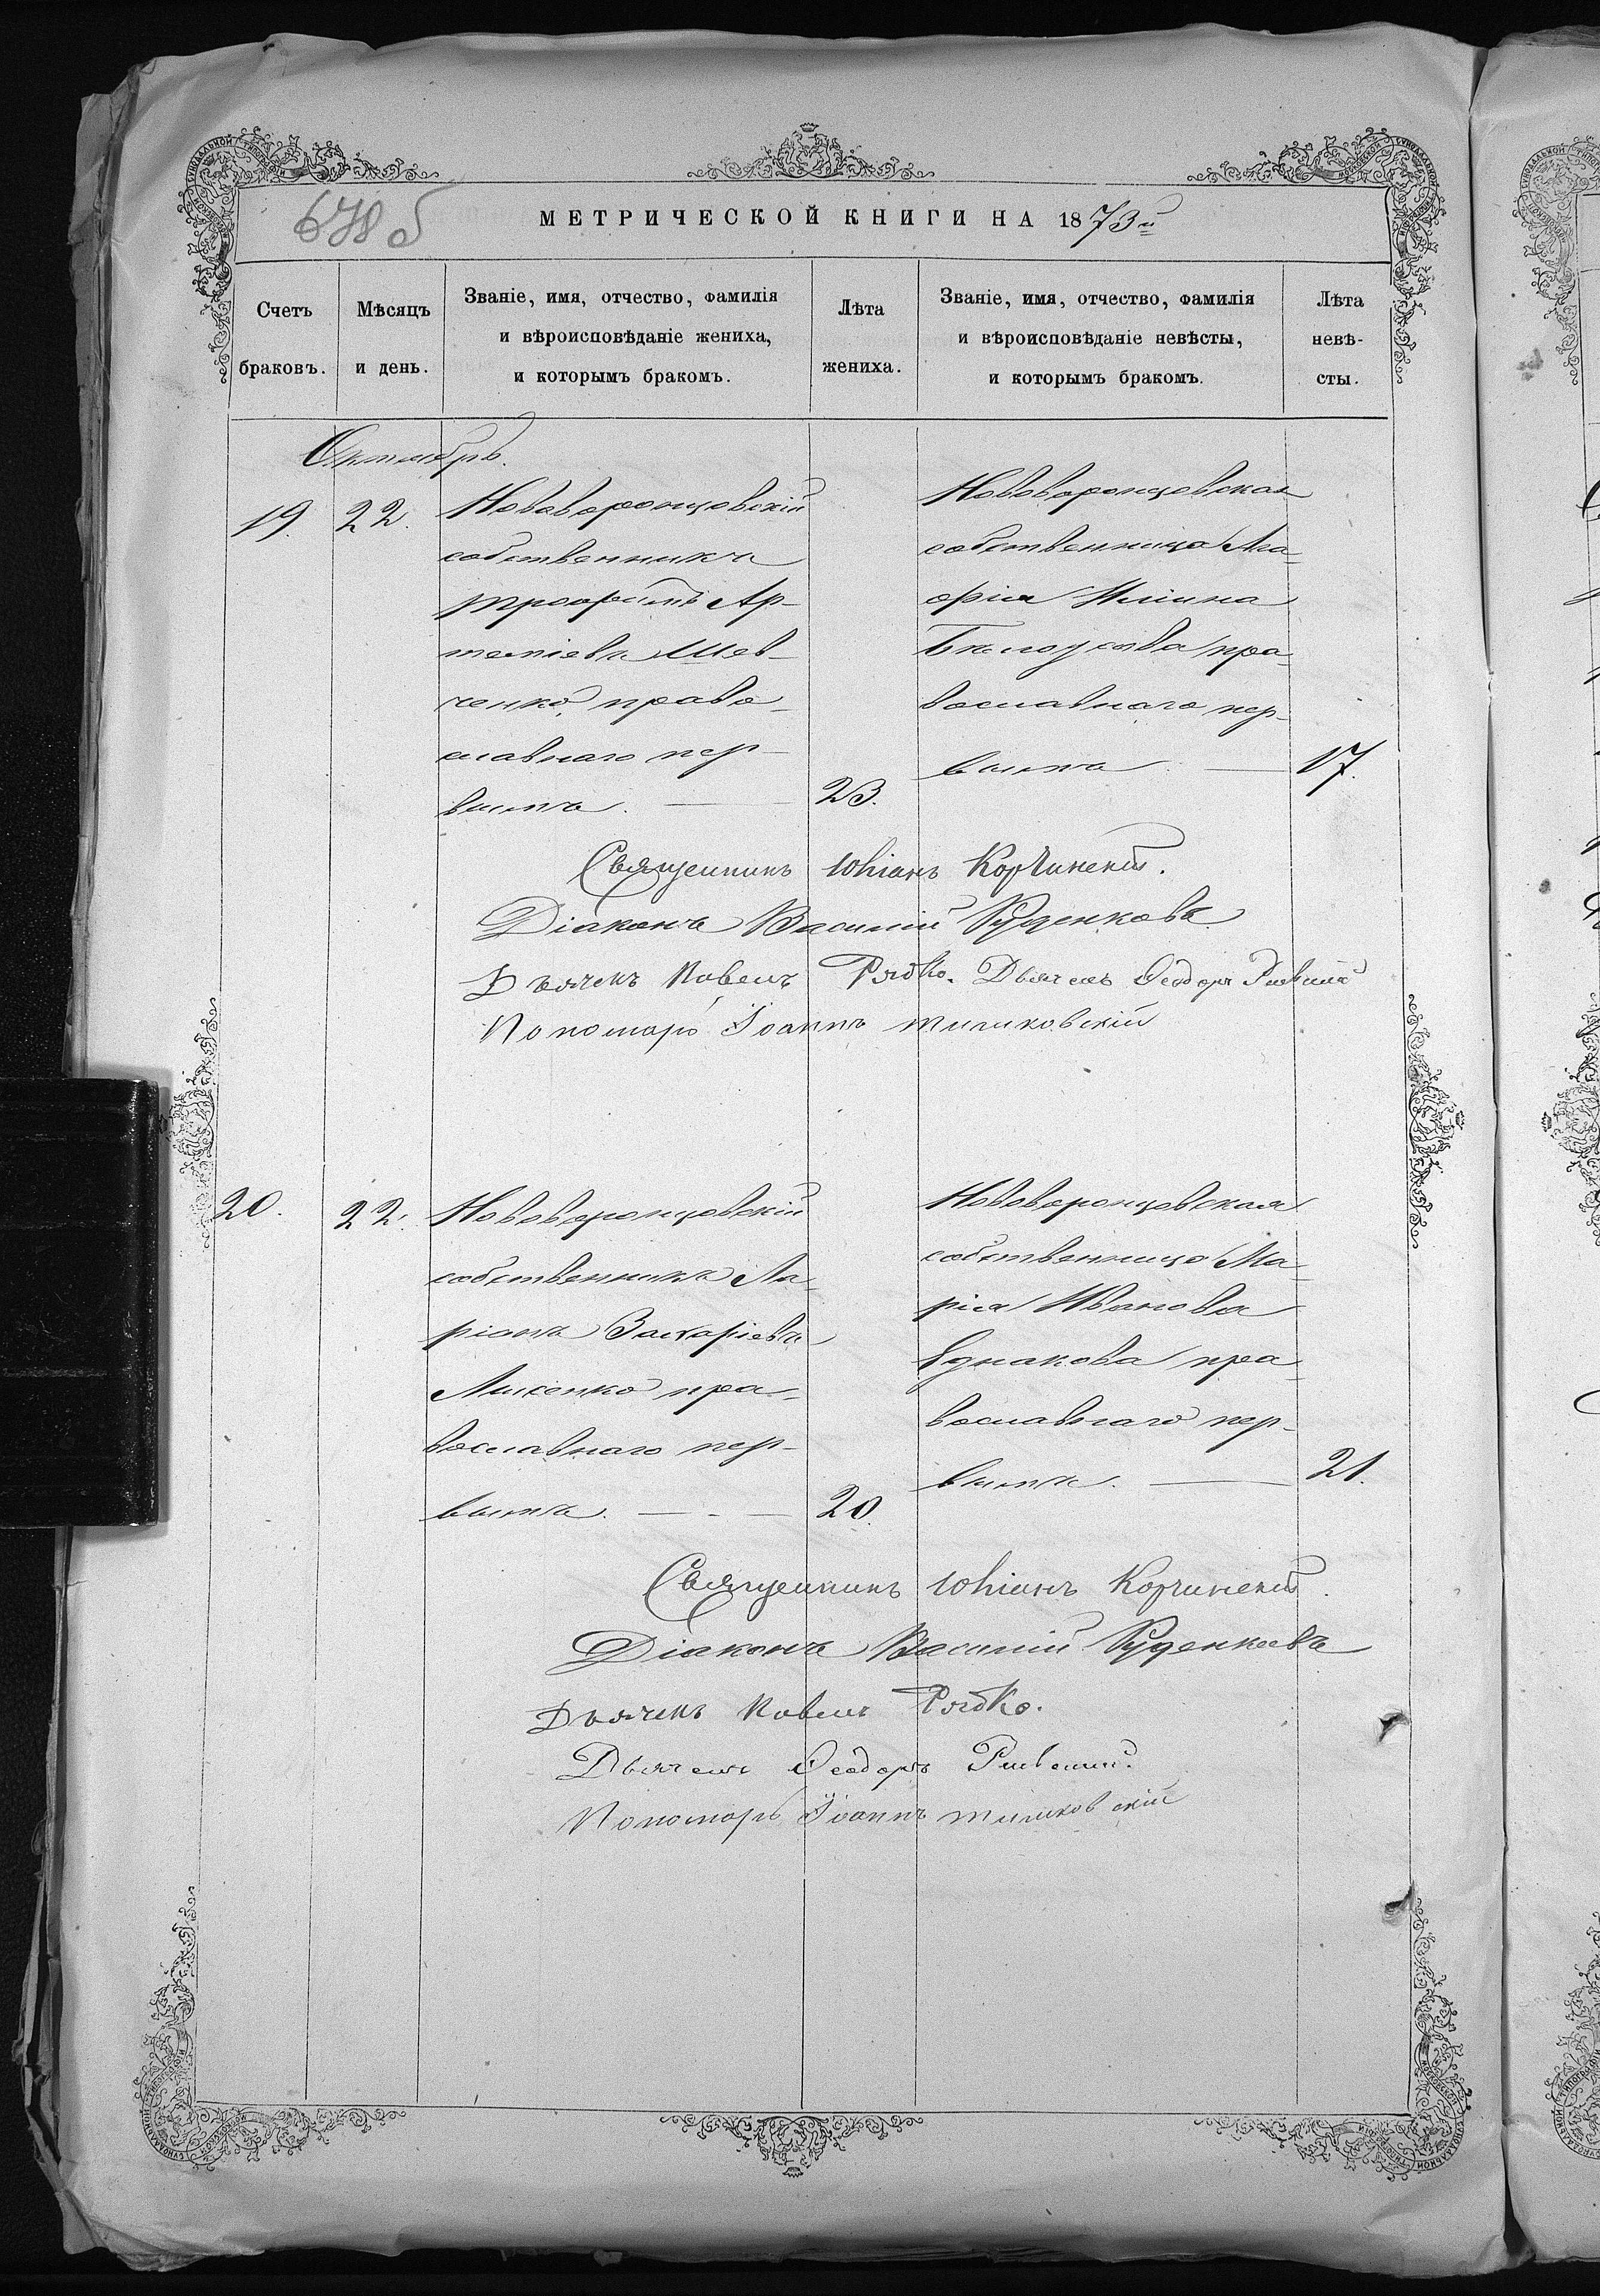 678 об
МЕТРИЧЕСКОЙ КНИГИ НА 1873й
Счетъ браковъ.
Мѣсяцъ и день.
Званіе, имя, отчество, фамилія
и вѣроисповѣданіе жениха,
и которымъ бракомъ.
Лѣта жениха.
Званіе, имя, отчество, фамилія
и вѣроисповѣданіе невѣсты,
и которымъ бракомъ.
Лѣта
невѣ-
сты.
Октябрь.
19. 22.
Нововоронцовскій
собственникъ
Трофимъ Ар-
темiевъ Шев-
ченко, право-
славнаго пер-
вымъ. 23.
Нововоронцовская
собственница Ма-
рія Ильина
Бѣлоусова пра-
вославнаго пер-
вымъ. 17.
Священникъ Юліанъ Корчинскій.
Діаконъ Василій Руденковъ
Дьячекъ Павелъ Рябко. Дьячекъ Ѳеодоръ
Пономарь Іоаннъ
20. 22.
Нововоронцовскій
собственникъ Ла-
ріонъ Захаріевъ
Лисенко пра-
вославнаго пер-
вымъ. 20.
Нововоронцовская
собственница Ма-
рія Иванова
Еднакова пра-
вославнаго пер-
вымъ. 21.
Священникъ Юліанъ Корчинскій.
Діаконъ Василій Руденковъ
Дьячекъ Павелъ Рябко.
Дьячекъ Ѳеодоръ
Пономарь Іоаннъ